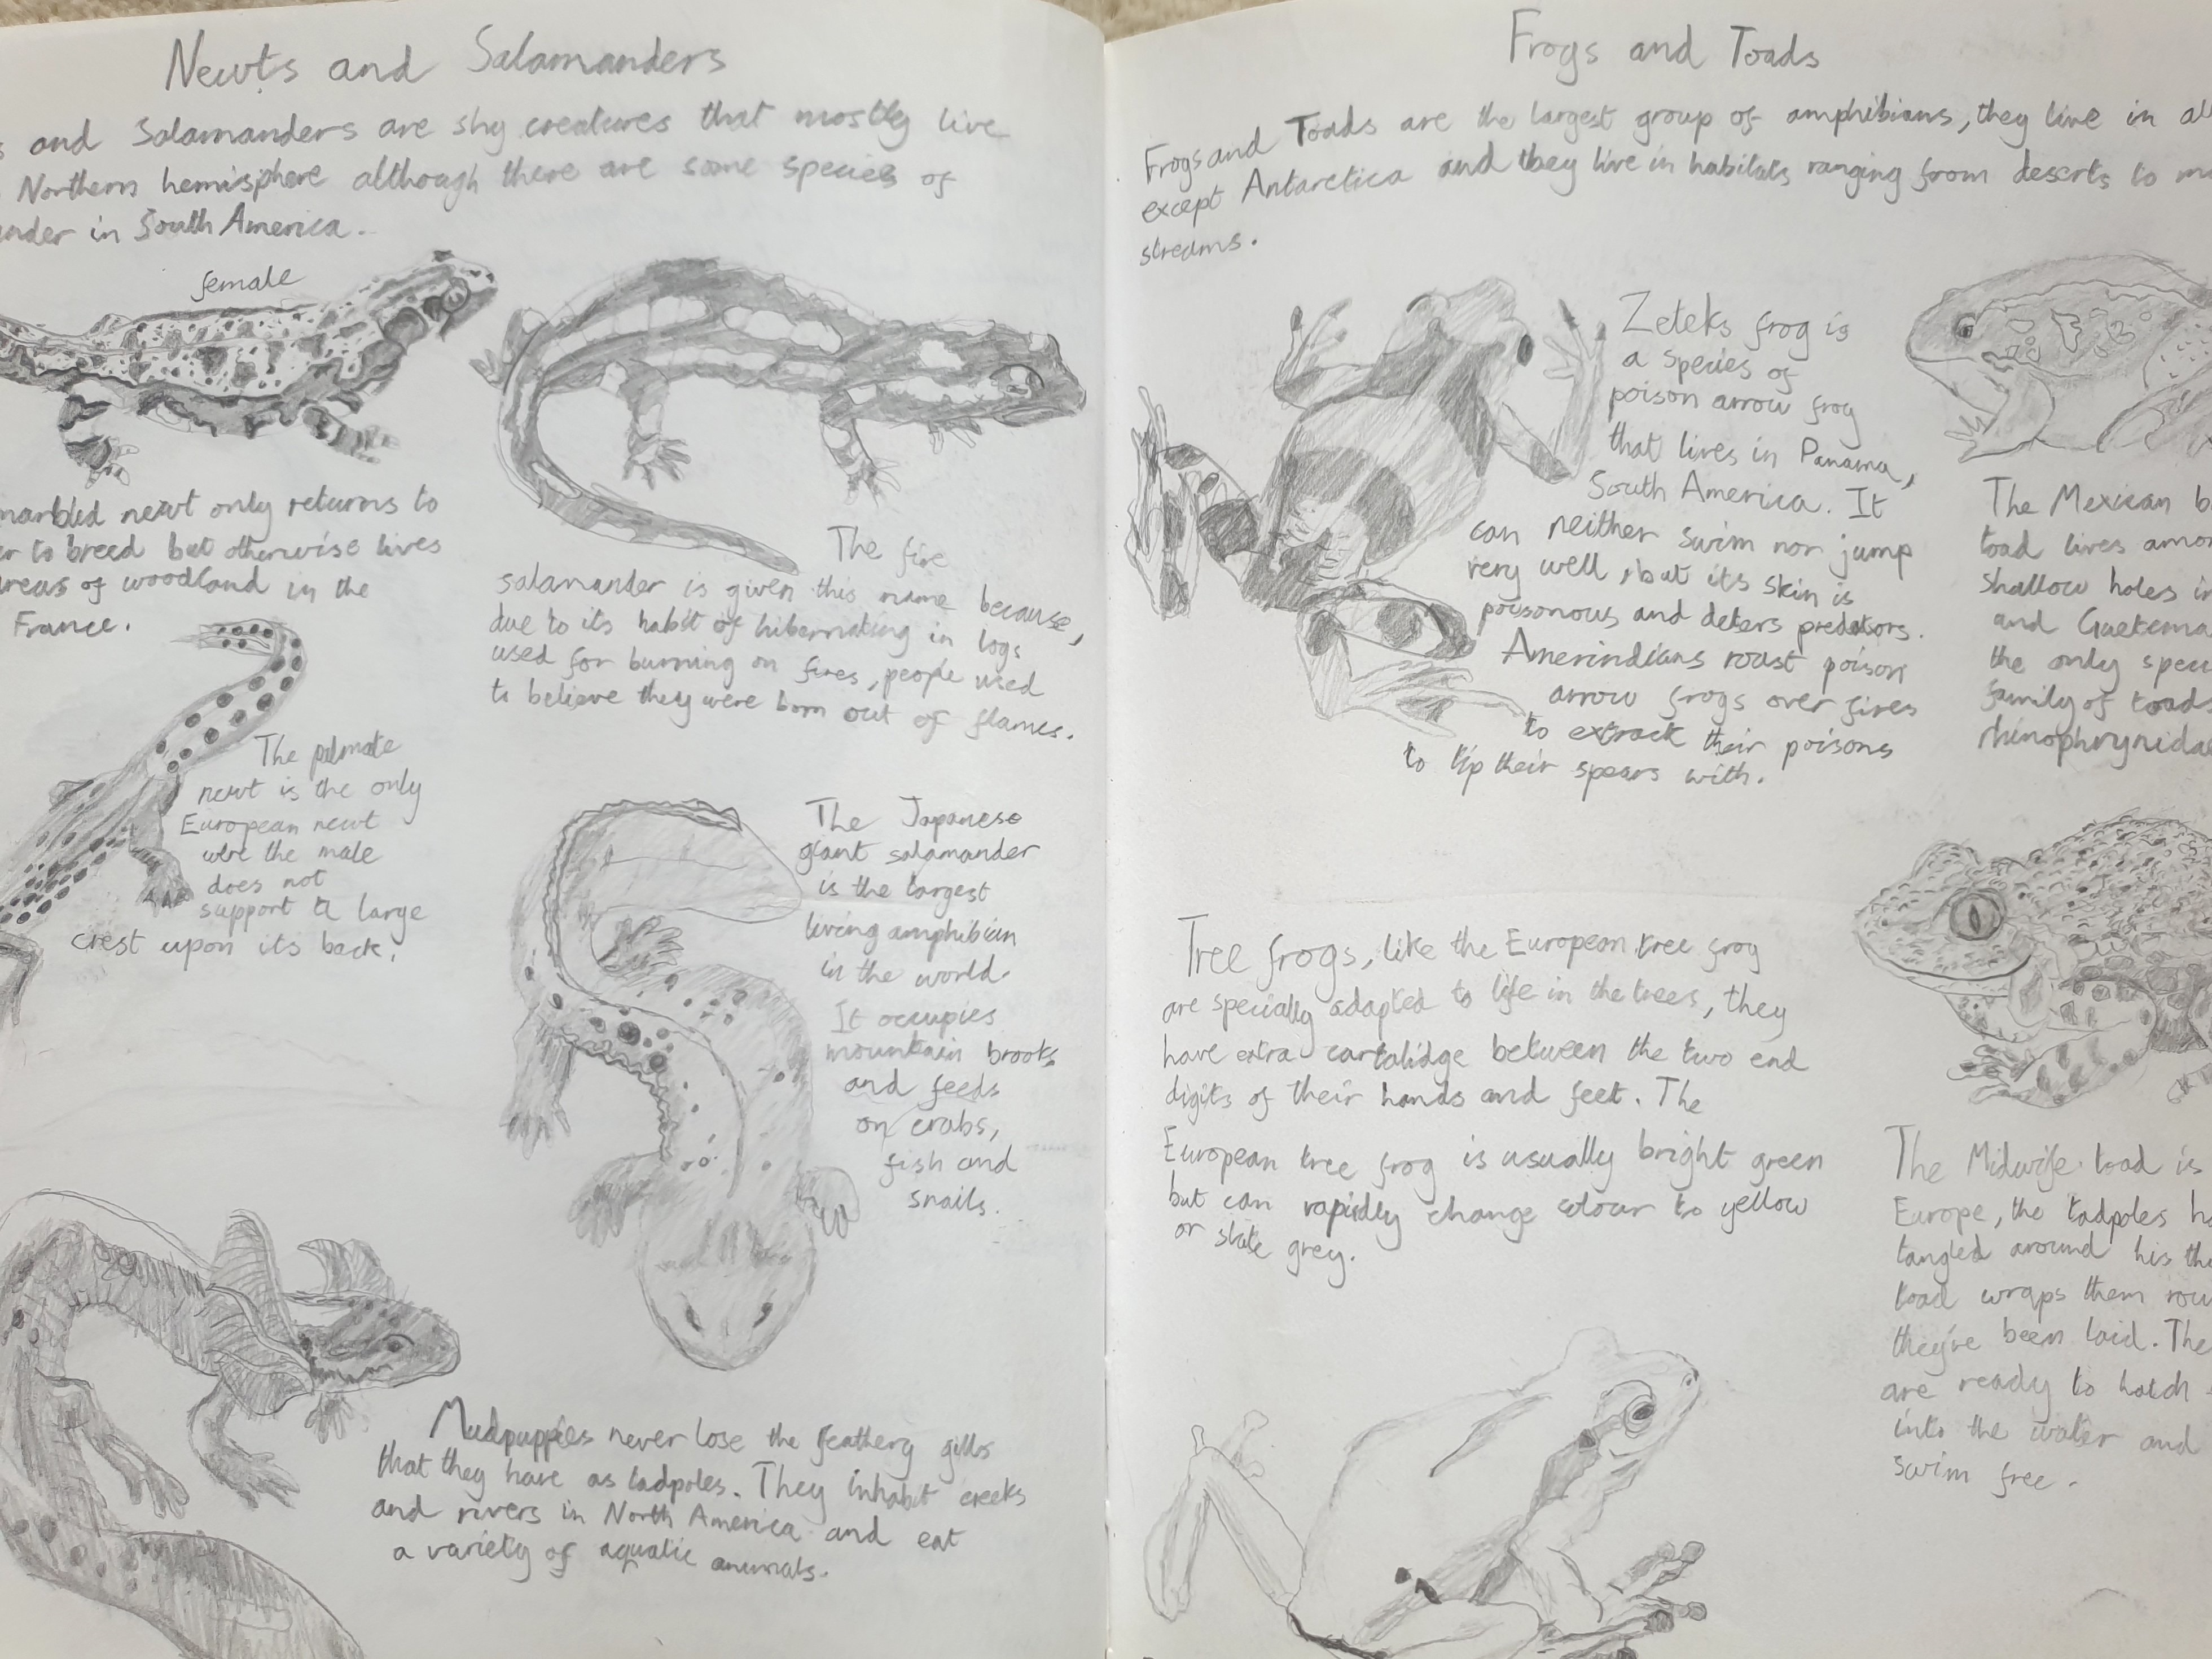 Newts and Salamanders
s and Salamanders are shy creatures that mostly live
Northern hemisphere although there are some species of
ander in South America.
female
marbled newt only returns to
er to breed but otherwise lives
areas of woodland in the
France.
The fire
salamander is given this name because,
due to its habit of hibernating in logs
used for burning on fires, people used
to believe they were born out of flames.
The palmate
newt is the only
European newt
were the male
does not
support a large
crest upon its back.
The Japanese
giant salamander
is the largest
living amphibian
in the world.
It occupies
mountain brooks
and feeds
on crabs,
fish and
snails.
Mudpuppies never lose the feathery gills
that they have as tadpoles. They inhabit creeks
and rivers in North America and eat
a variety of aquatic animals.
Frogs and Toads
Frogs and Toads are the largest group of amphibians, they live in all
except Antarctica and they live in habitats ranging from deserts to mo
streams.
Zeteks frog is
a species of
poison arrow frog
that lives in Panama,
South America. It
can neither swim nor jump
very well, but its skin is
poisonous and deters predators.
Amerindians roast poison
arrow frogs over fires
to extrack their poisons
to tip their spears with.
The Mexican b
toad lives amon
shallow holes in
and Guatema
the only speci
family of toads
rhinophrynidae
Tree frogs, like the European tree frog
are specially adapted to life in the trees, they
have extra cartalidge between the two end
digits of their hands and feet. The
European tree frog is usually bright green
but can rapidly change colour to yellow
or slate grey.
The Midwife toad is
Europe, the tadpoles ha
tangled around his thi
toad wraps them rou
they've been laid. The
are ready to hatch
into the water and
swim free.